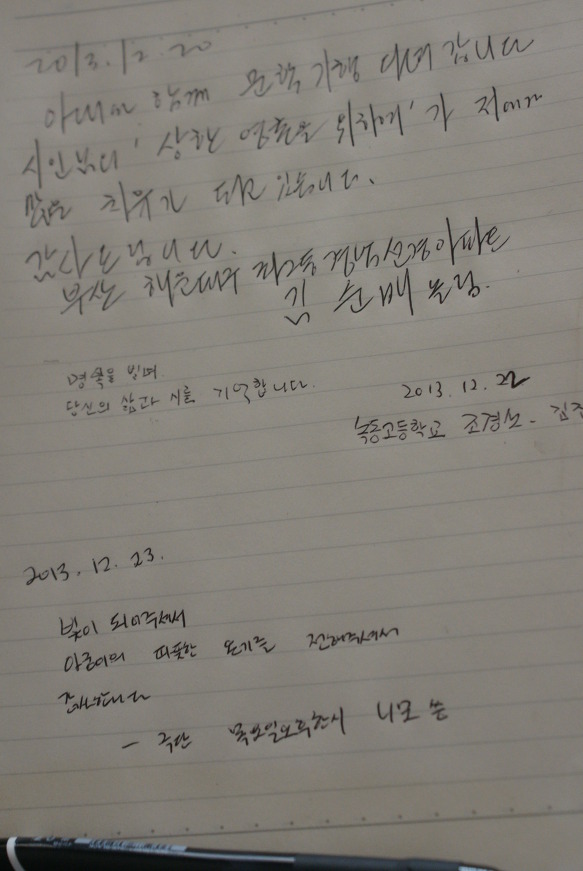 2013.12.20
아내와 함께 문학기행 다녀 갑니다
시인님의 '상한 영혼을 위하여'가 저에게
많은 치유가 되고 있습니다.
감사드립니다.
부산 해운대구 좌동 경남선경아파트
김 춘 배 올림.
명복을 빌며.
당신의 삶과 시를 기억합니다.
2013. 12. 22
녹동고등학교 조경선 - 김
2013. 12. 23.
빛이 되어주셔서
따뜻한 온기를 전해주셔서
감사합니다
- 극단 목요일오후한시 니모 씀